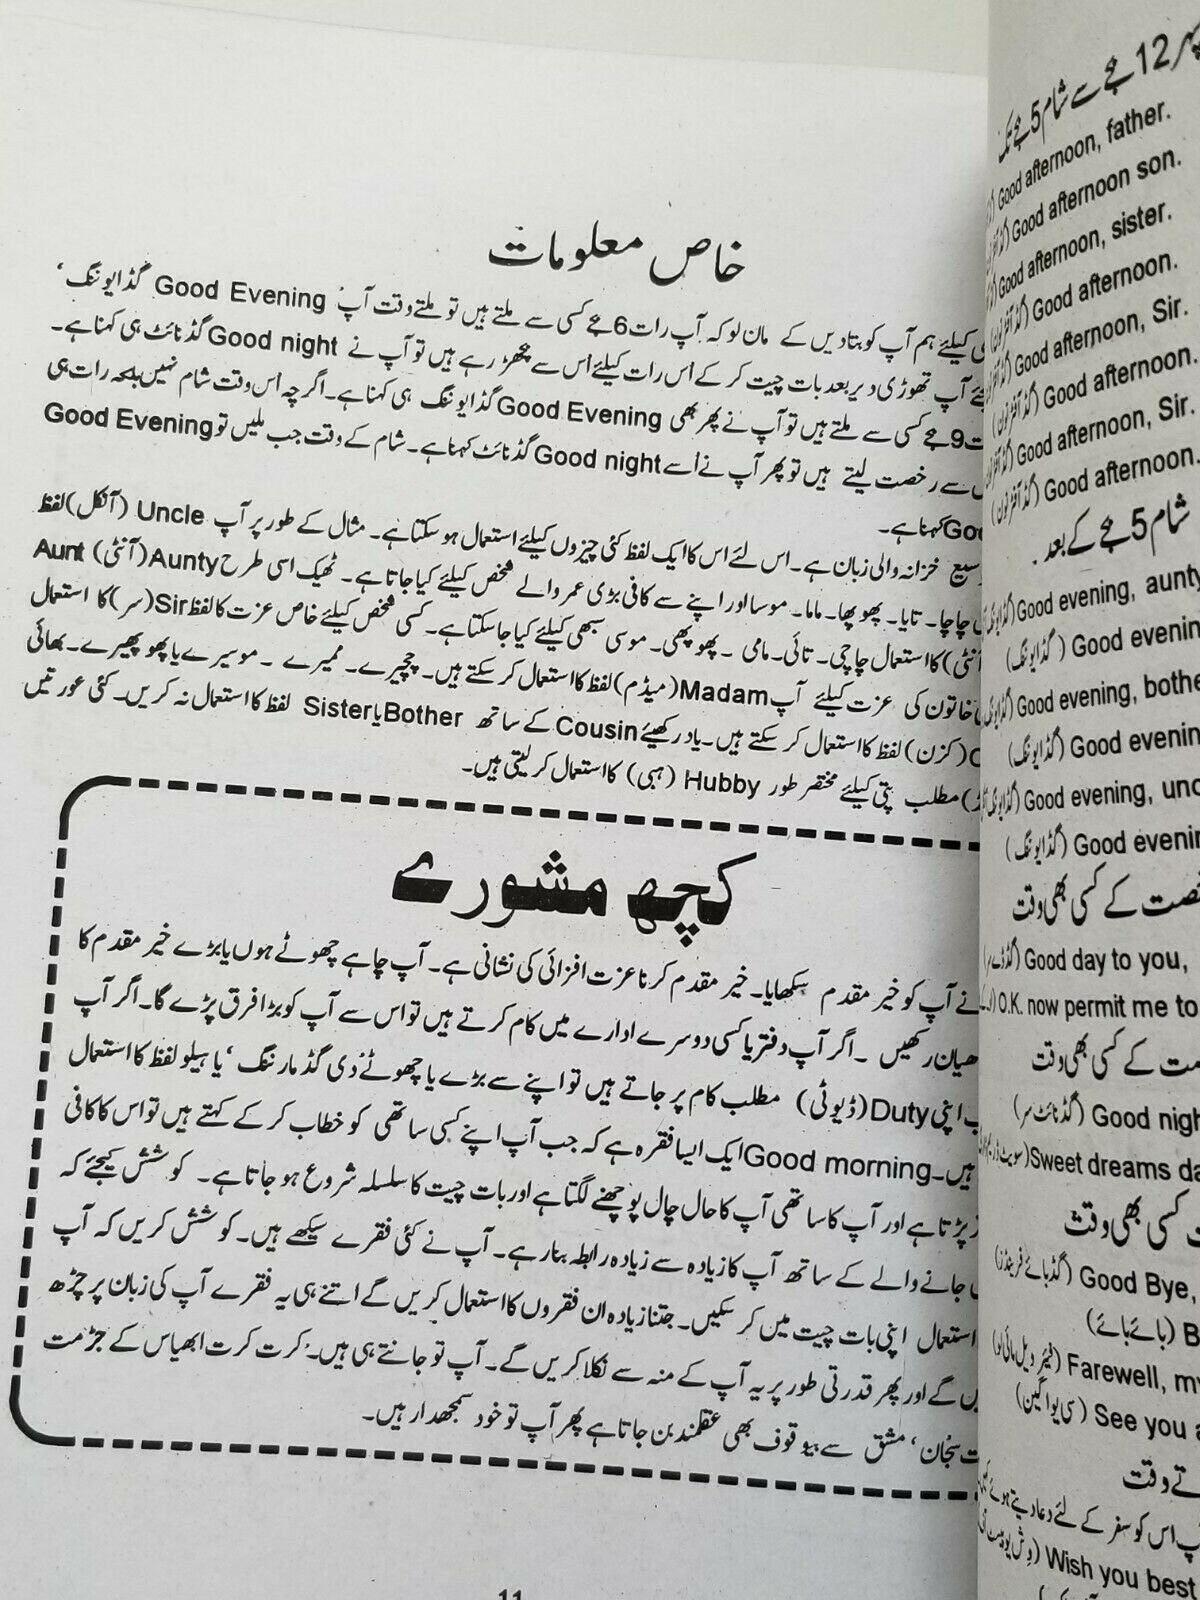 خاص معلومات
کیلئے ہم آپ کو بتادیں کے مان لو کہ آپ رات 6 بجے کسی سے ملتے ہیں تو ملتے وقت آپ Good Evening گڈایوننگ ‘
آپ تھوڑی دیر بعد بات چیت کر کے اُس رات کیلئے اس سے بچھڑ رہے ہیں تو آپ نے Good night گڈ نائٹ ہی کہنا ہے۔
9 بجے کسی سے ملتے ہیں تو آپ نے پھر بھی Good Evening گڈایوننگ ہی کہنا ہے۔ اگر چہ اس وقت شام نہیں بلکہ رات ہی
سے رخصت لیتے ہیں تو پھر آپ نے اُسے Good night گڈ نائٹ کہنا ہے۔ شام کے وقت جب ملیں تو Good Evening
کہنا ہے۔
خزانہ والی زبان ہے۔ اس لئے اس کا ایک لفظ کئی چیزوں کیلئے استعمال ہو سکتا ہے۔ مثال کے طور پر آپ Uncle (انکل) لفظ
چاچا۔ تایا۔ پھوپھا۔ ماما۔ موسا اور اپنے سے کافی بڑی عمر والے شخص کیلئے کیا جاتا ہے۔ ٹھیک اسی طرح Aunty (آنٹی) Aunt
کا استعمال چاچی۔ تائی۔ مامی ۔ پھوپھی۔ موسی سبھی کیلئے کیا جا سکتا ہے۔ کسی شخص کیلئے خاص عزت کا لفظ Sir (سر) کا استعمال
خاتون کی عزت کیلئے آپ Madam (میڈم) لفظ کا استعمال کر سکتے ہیں۔ چچیرے۔ ممیرے ۔ موسیرے یا پھوپھیرے۔ بھائی
(کزن) لفظ کا استعمال کر سکتے ہیں۔ یاد رکھیئے Cousin کے ساتھ Bother یا Sister لفظ کا استعمال نہ کریں۔ کئی عورتیں
مطلب پتی کیلئے مختصر طور Hubby (ہبی) کا استعمال کر لیتی ہیں۔
کچھ مشورے
نے آپ کو خیر مقدم سکھایا۔ خیر مقدم کرنا عزت افزائی کی نشانی ہے۔ آپ چاہے چھوٹے ہوں یا بڑے خیر مقدم کا
دھیان رکھیں ۔ اگر آپ دفتر یا کسی دوسرے ادارے میں کام کرتے ہیں تو اس سے آپ کو بڑا فرق پڑے گا۔ اگر آپ
اپنی Duty (ڈیوٹی) مطلب کام پر جاتے ہیں تو اپنے سے بڑے یا چھوٹے کو گڈ مارننگ ‘ یا ہیلو لفظ کا استعمال
ہیں۔ Good morning ایک ایسا فقرہ ہے کہ جب آپ اپنے کسی ساتھی کو خطاب کر کے کہتے ہیں تو اس کا کافی
پڑتا ہے اور آپ کا ساتھی آپ کا حال چال پوچھنے لگتا ہے اور بات چیت کا سلسلہ شروع ہو جاتا ہے۔ کوشش کیجئے کہ
جانے والے کے ساتھ آپ کا زیادہ سے زیادہ رابطہ بنا رہے۔ آپ نے کئی فقرے سیکھے ہیں۔ کوشش کریں کہ آپ
استعمال اپنی بات چیت میں کر سکیں۔ جتنا زیادہ ان فقروں کا استعمال کریں گے اتنے ہی یہ فقرے آپ کی زبان پر چڑھ
گے اور پھر قدرتی طور پر یہ آپ کے منہ سے نکلا کریں گے۔ آپ تو جانتے ہی ہیں۔ کرت کرت ابھیاس کے جڑ مت
سجان‘ مشق سے بیوقوف بھی عقلمند بن جاتا ہے پھر آپ تو خود سمجھدار ہیں۔
11
12 بجے سے شام 5 بجے تک
Good afternoon, father.
Good afternoon son.
Good afternoon, sister.
Good afternoon. (گڈ آفٹرنون)
Good afternoon, Sir.
Good afternoon. (گڈ آفٹرنون)
Good afternoon, Sir.
Good afternoon. (گڈ آفٹرنون)
شام 5 بجے کے بعد
Good evening, aunty
Good evenin (گڈایوننگ)
Good evening, bothe
Good evenin (گڈایوننگ)
Good evening, unc
Good evenin (گڈایوننگ)
کے کسی بھی وقت
Good day to you,
O.K. now permit me to
کے کسی بھی وقت
Good nigh (گڈ نائٹ سر)
Sweet dreams da
کسی بھی وقت
Good Bye, (گڈ بائے فرینڈز)
B (بائے بائے)
Farewell, my
See you a (سی یو اگین)
وقت
اس کو سفر کے لئے دعا دیتے ہوئے
Wish you best